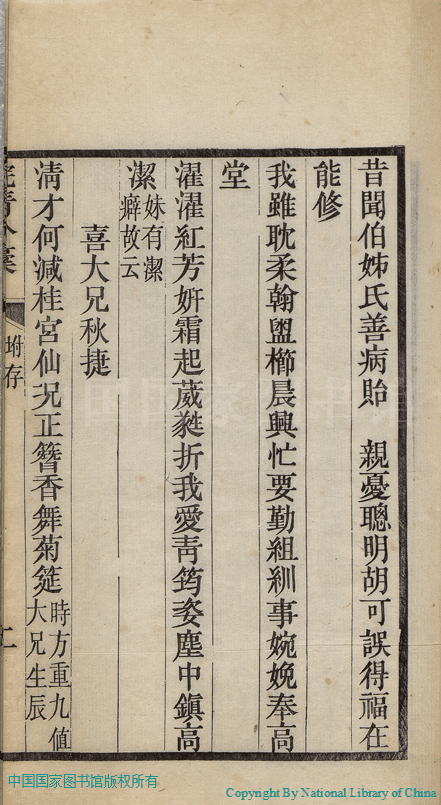 昔聞伯姊氏善病貽　親憂聰明胡可誤得福在
能修
我雖耽柔翰盥櫛晨興忙要勤組紃事婉娩奉高
堂
濯濯紅芳姸霜起葳蕤折我愛靑筠姿塵中鎭高
潔妹有潔癖故云
喜大兄秋捷
淸才何減桂宮仙况正簪香舞菊筵時方重九值大兄生辰
附存
二
中国国家图书馆版权所有
Copyright By National Library of China